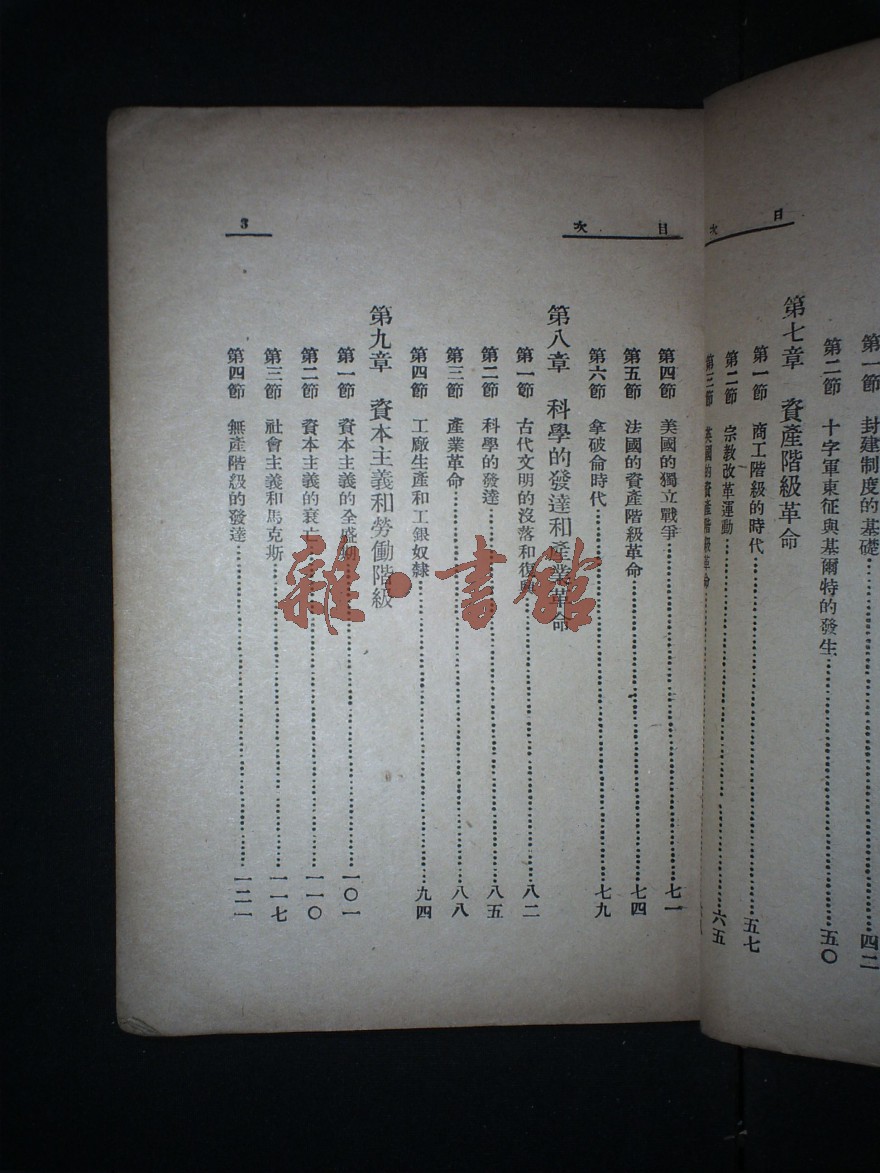 目次
第一節 封建制度的基礎……四二
第二節 十字軍東征與基爾特的發生……五〇
第七章 資產階級革命
第一節 商工階級的時代……五七
第二節 宗教改革運動……六五
第三節 英國的資產階級革命
目次
3
第四節 美國的獨立戰爭……七一
第五節 法國的資產階級革命……七四
第六節 拿破侖時代……七九
第八章 科學的發達和產業革命
第一節 古代文明的沒落和復興……八二
第二節 科學的發達……八五
第三節 產業革命……八八
第四節 工廠生產和工銀奴隸……九四
第九章 資本主義和勞働階級
第一節 資本主義的全盛期……一〇一
第二節 資本主義的衰亡……一一〇
第三節 社會主義和馬克斯……一一七
第四節 無產階級的發達……一二一
雜·書館